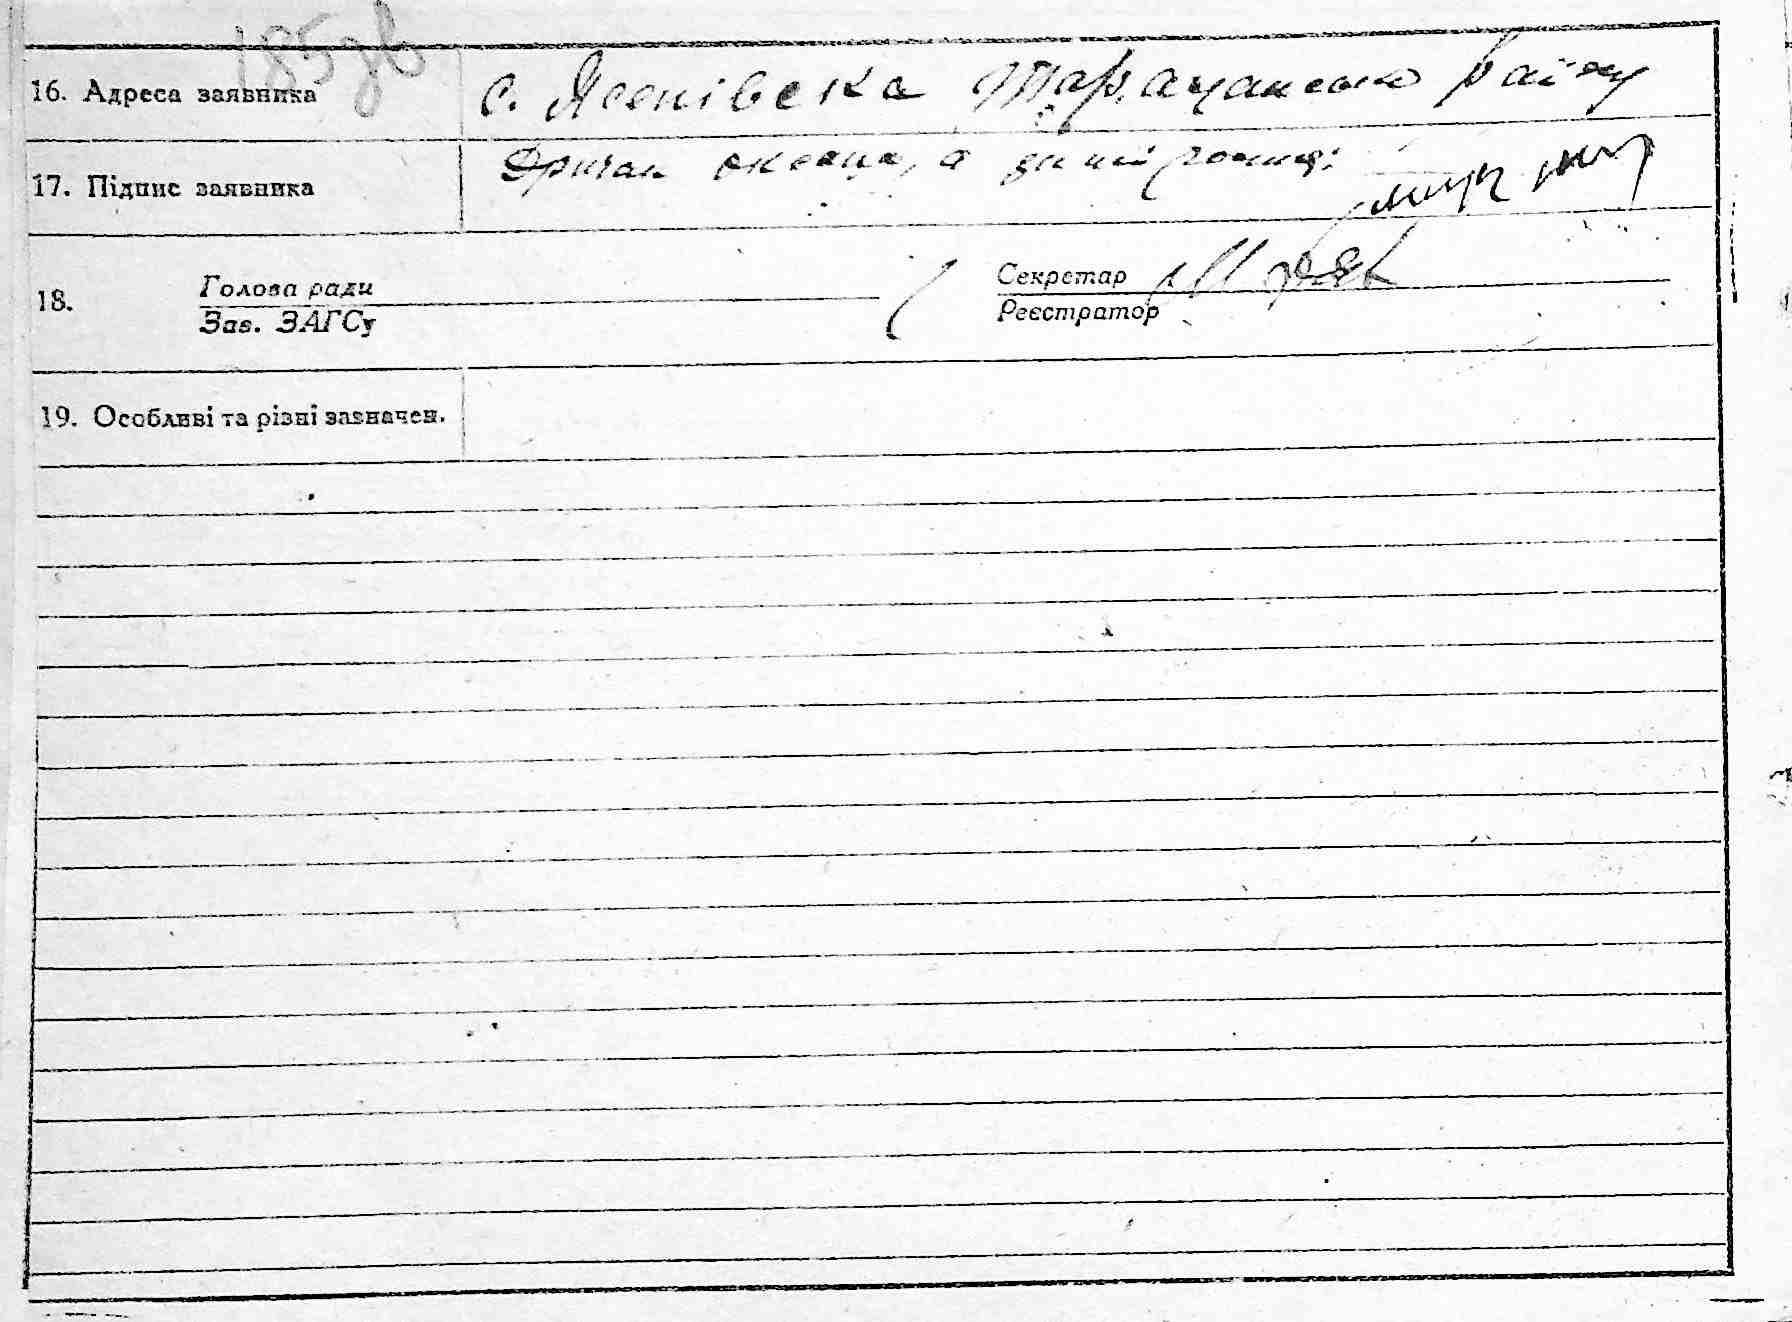 185зв
16. Адреса заявника с. Ясенівска Таращансько району
17. Підпис заявника а за неї
18. Голова ради Секретар
Зав. ЗАГСу Реєстратор
19. Особливі та різні зазначен.